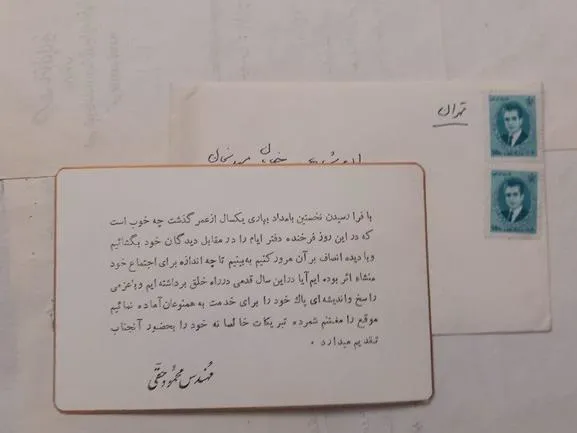 تهران
با فرا رسیدن نخستین بامداد بهاری یکسال ازعمر گذشت چه خوب است
که در این روز فرخنده دفتر ایام را در مقابل دیدگان خود بگشائیم
وبا دیده انصاف بر آن مرور کنیم به‌بینیم تا چه اندازه برای اجتماع خود
منشاء اثر بوده ایم آیا دراین سال قدمی درراه خلق برداشته ایم وباعزمی
راسخ واندیشه‌ای پاك خود را برای خدمت به همنوعان آماده نمائیم
موقع را مغتنم شمرده تبریکات خالصا نه خود را بحضور آنجناب
تقدیم میدارد ۰
مهندس محمود حقی